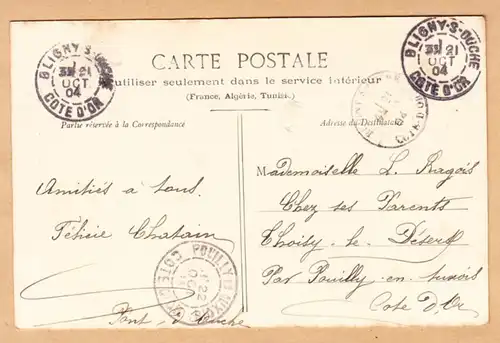 BLIGNY-S-OUCHE
21
OCT
04
COTE D'OR
BLIGNY-S-OUCHE
21
OCT
04
COTE D'OR
CARTE POSTALE
utiliser seulement dans le service intérieur
(France, Algérie, Tunisie.)
Partie réservée à la Correspondance
Adresse du Destinataire
21
04
COTE D'OR
Mademoiselle L. Ragois
Amitiés à tous.
Chez ses Parents
Félicie Chatain
Choisy-le-Désert
POUILLY EN AUXOIS
22
OCT
COTE D'OR
Par Pouilly-en-Auxois
Côte d'Or
Pont-d'Ouche